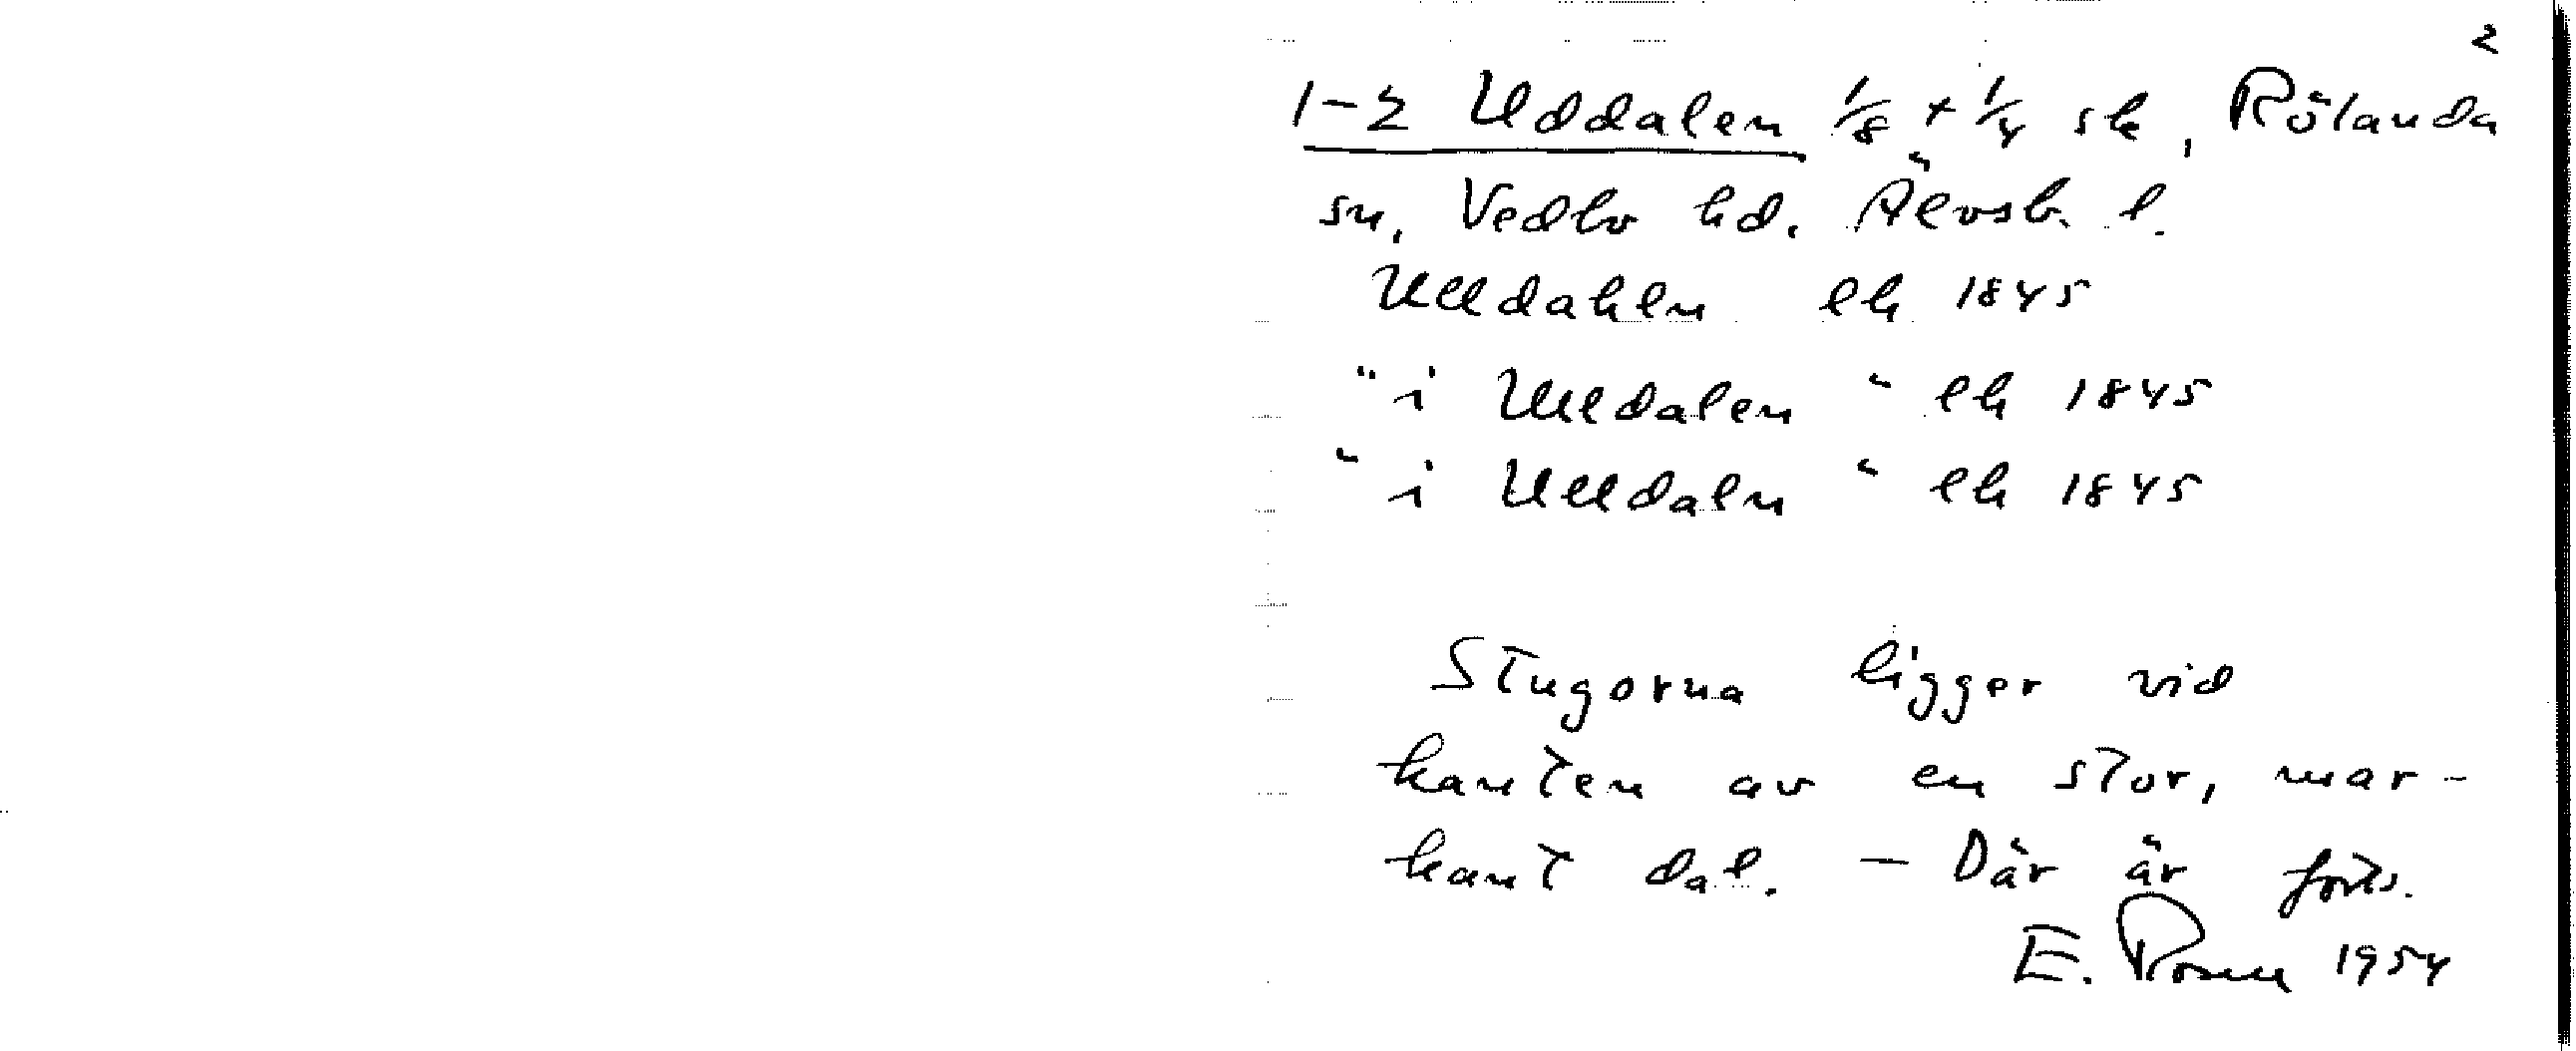 2
1-2 Uddalen 1/8 + 1/4 sk, Rölanda
sn, Vedbo hd. Älvsb. l.
Ulldahln lh 1845
"i Ulldalen" lh 1845
"i Ulldaln" lh 1845
Stugorna ligger vid
kanten av en stor, mar-
kant dal. - Där är forts.
E. Rosell 1954